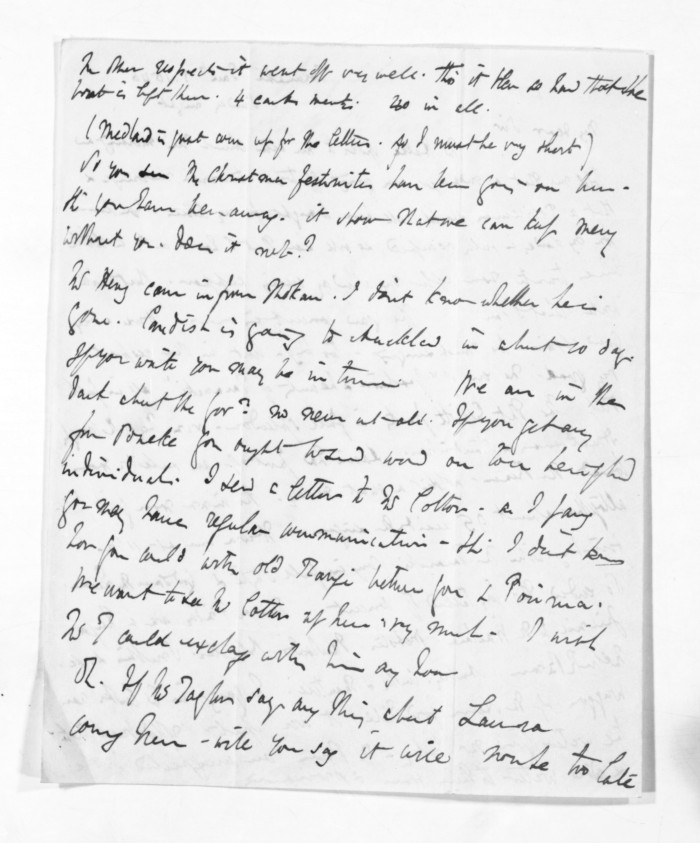 In other respects it went off very well. tho' it blew so hard that the
boat is left there. 4 each ments. 20 in all.
(Medland is just come up for the letters. so I must be very short)
So you see the Christmas festivities have been going on here -
tho' you have been away. it shows that we can keep merry
without you. does it not?
Mr Heny came in from Mokau. I don't know whether he is
gone. Cavdish is going to Auckland in about 10 days.
If you write you may be in time. We are in the
dark about the Govr. no news at all. If you get any
from you ought to send word on to us benighted
individuals. I send a letter to Mr Cotton - as I fancy
you may have regular communication - tho' I don't know
how you could with old between you & Poverty.
We want to see Mr Cotton up here - very much. I wish
Mr T could exchange with him any how
Oh. If Mr Taylor says any thing about Laura
coming here - will you say it will not be too late